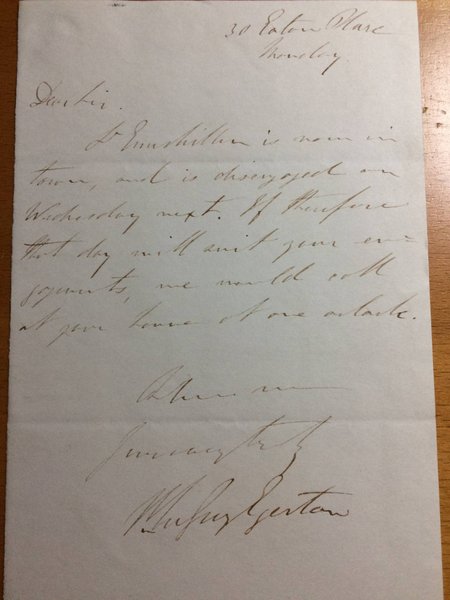 30 Eaton Place
Monday
Dear Sir.
Ld Enniskillen is now in
town, and is disengaged on
Wednesday next. If therefore
that day will suit your en-
gagements, we would call
at your house at one o'clock.
Believe me
yours very truly
Egerton